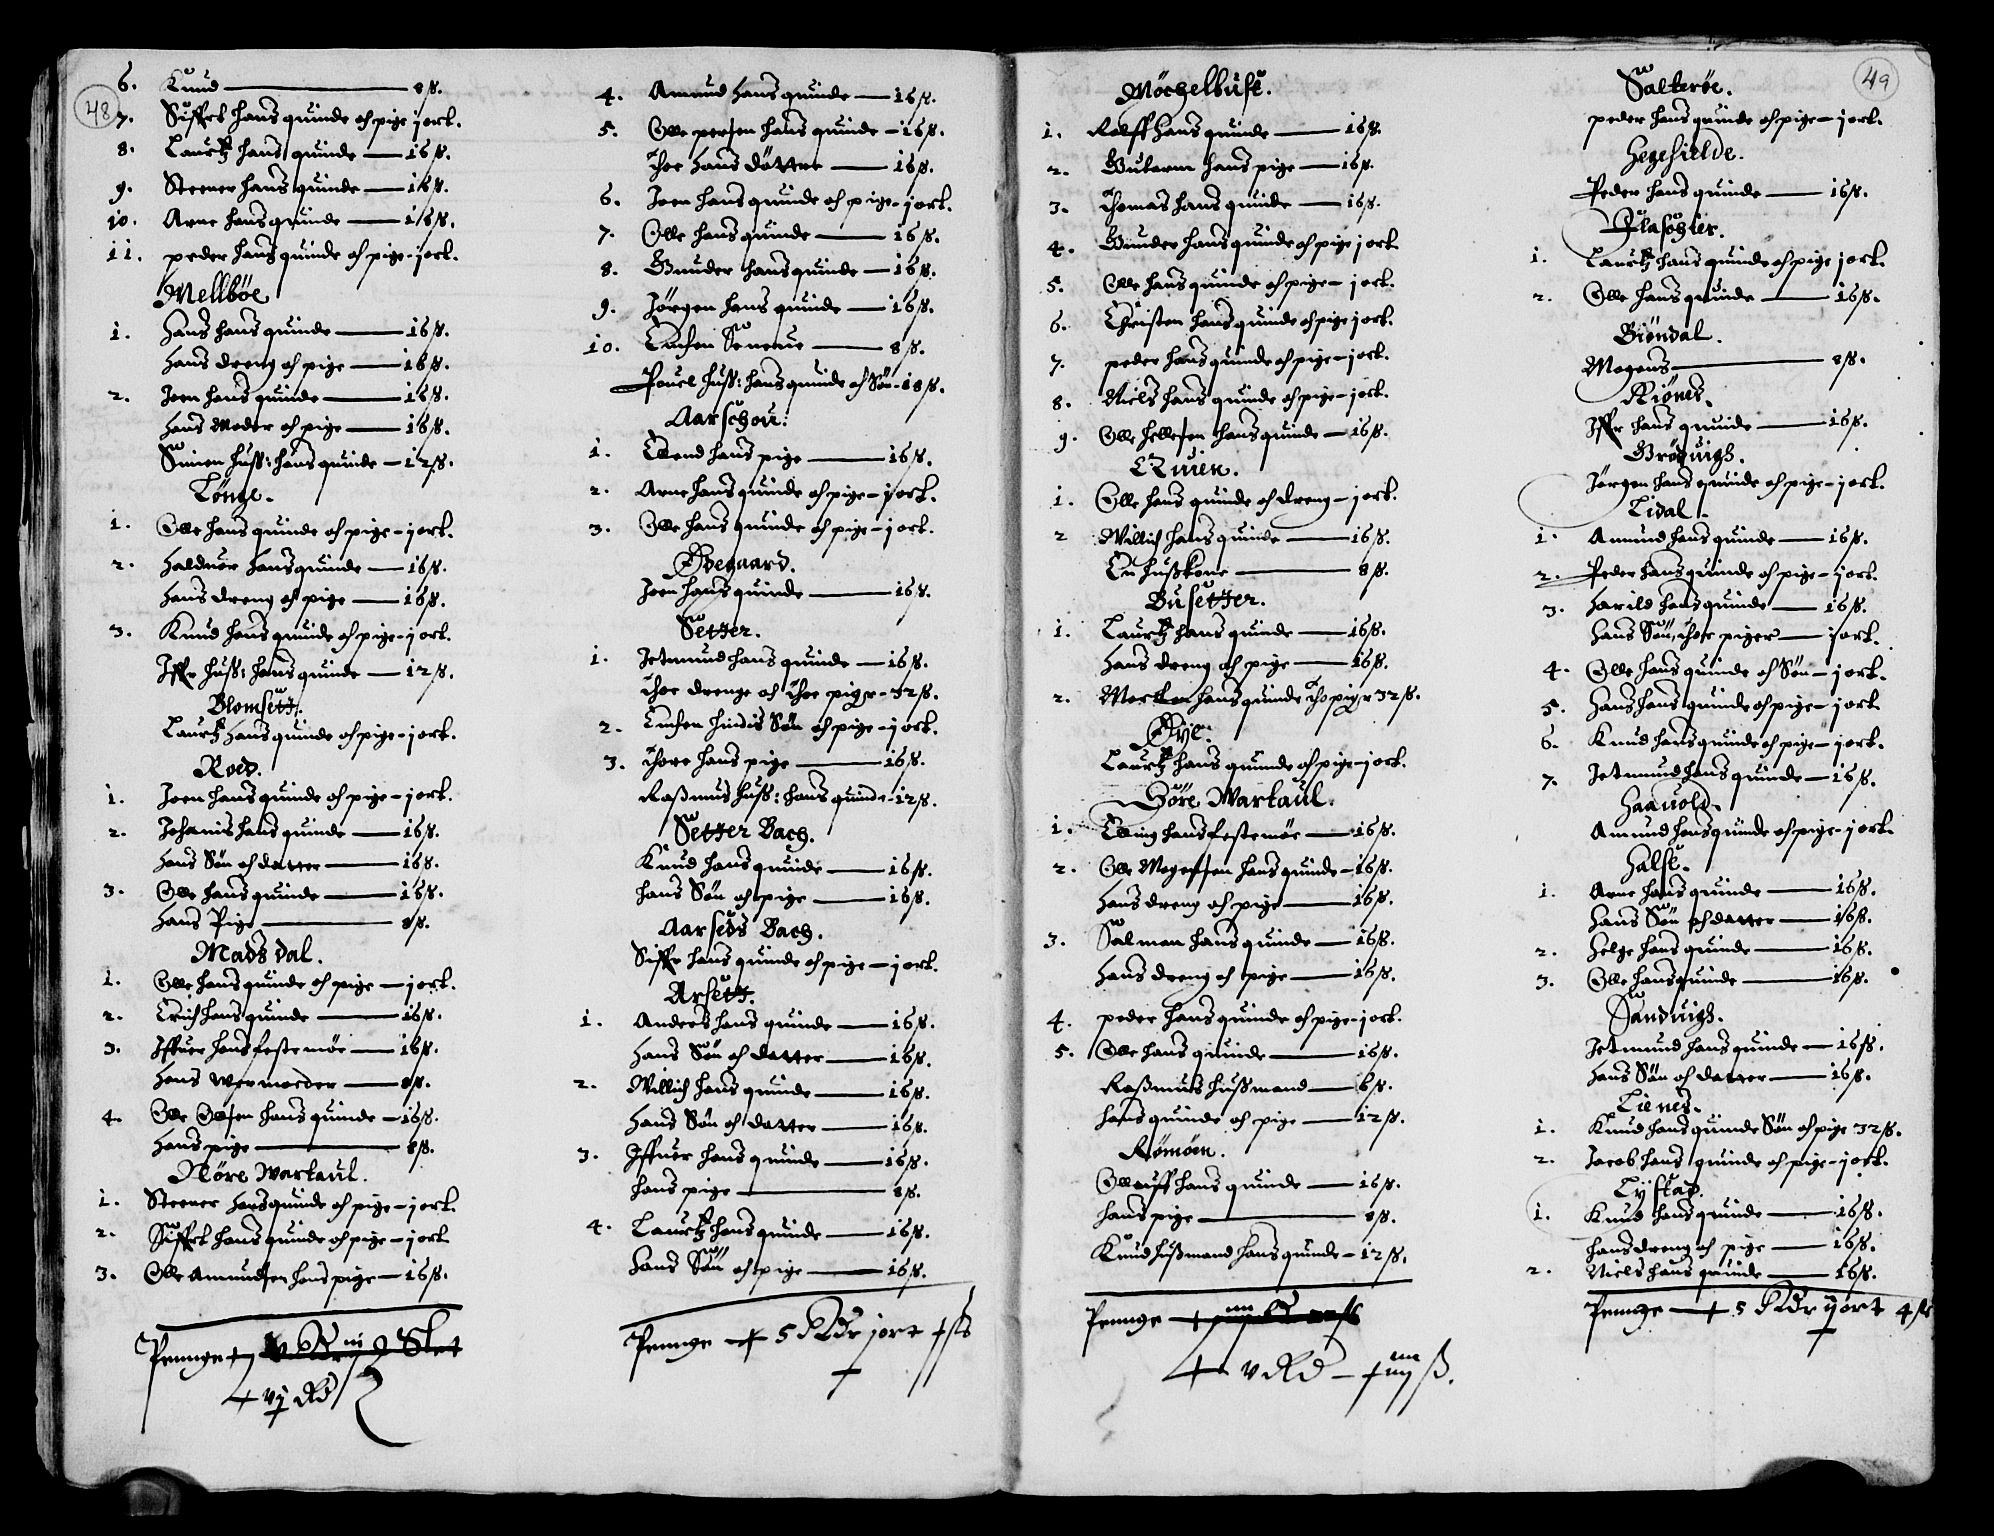 48
6. Knud — 8 ß.
7. Siffret hans quinde och pige jort.
8. Lauritz hans quinde — 16 ß.
9. Steener hans quinde — 16 ß.
10. Arne hans quinde — 16 ß.
11. peder hans quinde och pige - jort.
Mellböe
1. Hans hans quinde — 16 ß.
Hans dreng och pige — 16 ß.
2. Joen hans quinde — 16 ß.
Hans Moder och pige — 16 ß.
Simen huss: hans quinde — 12 ß.
Lönge.
1. Olle hans quinde och pige - jort.
2. Halduor hans quinde — 16 ß.
Hans dreng och pige — 16 ß.
3. Knud hans quinde och pige - jort.
Iffr huss: hans quinde — 12 ß.
Blomsett.
Lauritz hans quinde och pige - jort.
Roed.
1. Joen hans quinde och pige - jort.
2. Johanis hans quinde — 16 ß.
Hans Sön och datter — 16 ß.
3. Olle hans quinde — 16 ß.
Hans Pige — 8 ß.
Mads dal.
1. Olle hans quinde och pige - jort.
2. Erich hans quinde — 16 ß.
3. Iffuer hans festemöe — 16 ß.
Hans Wermoeder — 8 ß.
4. Olle Olsen hans quinde - 16 ß.
Hans pige — 8 ß.
Nöre Wartaul.
1. Steener hans quinde och pige - jort.
2. Siffret hans quinde och pige - jort
3. Olle Amundsen hans pige - 16 ß.
Pennge
+ vj Rd
4. Amund hans quinde — 16 ß.
5. Olle persen hans quinde - 16 ß.
Thoe hans döttre — 16 ß.
6. Joen hans quinde och pige - jort.
7. Olle hans quinde — 16 ß.
8. Gunder hans quinde — 16 ß.
9. Jörgen hans quinde — 16 ß.
10. Encken — 8 ß.
Pouel huss: hans quinde och Sön - 18 ß.
Aarschou:
1. Elend hans pige — 16 ß.
2. Arne hans quinde och pige - jort.
3. Olle hans quinde och pige - jort.
Ödegaard.
Joen hans quinde — 16 ß.
Setter.
1. Jetmund hans quinde — 16 ß.
thoe drenge och thoe piger - 32 ß.
2. Encken hindis Sön och pige - jort.
3. Thore hans pige — 16 ß.
Rassmus huss: hans quinde - 12 ß.
Setter Bach.
Knud hans quinde — 16 ß.
hans Sön och pige — 16 ß.
Aarseds Bach.
Siffr hans quinde och pige - jort.
Arsett.
1. Anders hans quinde — 16 ß.
Hans Sön och datter — 16 ß.
2. Willich hans quinde — 16 ß.
Hans Sön och datter — 16 ß.
3. Iffuer hans quinde — 16 ß.
hans pige — 8 ß.
4. Lauritz hans quinde — 16 ß.
Hans Sön och pige — 16 ß.
Pennge + 5 Rdr jort 4 ß
49
Möchelbust.
1. Rolff hans quinde — 16 ß.
2. Guttorm hans pige — 16 ß.
3. Thomas hans quinde — 16 ß.
4. Gunder hans quinde och pige jort
5. Olle hans quinde och pige - jort.
6. Christen hans quinde och pige jort.
7. peder hans quinde och pige - jort.
8. Niels hans quinde och pige - jort.
9. Olle hellesen hans quinde - 16 ß.
1. Olle hans quinde och dreng - jort.
2 Willich hans quinde — 16 ß.
En husskone — 8 ß.
Busetter.
1. Lauritz hans quinde — 16 ß.
Hans dreng och pige — 16 ß.
2. Morten hans quinde tho piger 32 ß.
Öye.
Lauritz hans quinde och pige - jort.
Söre Wartaul.
1. Elling hans festemöe — 16 ß.
2. Olle Mogensen hans quinde - 16 ß.
Hans dreng och pige — 16 ß.
3. Salmon hans quinde — 16 ß.
Hans dreng och pige — 16 ß.
4. peder hans quinde och pige - jort.
5. Olle hans quinde — 16 ß.
Rassmus hussmand — 6 ß.
hans quinde och pige — 12 ß.
Römoen.
Ollauff hans quinde — 16 ß.
hans pige — 8 ß.
Knud hussmand hans quinde - 12 ß.
Pennge
+ v Rd - ß.
Salteröe.
peder hans quinde och pige - jort.
Hegesielde.
Peder hans quinde — 16 ß.
1. Lauritz hans quinde och pige jort.
2. Olle hans quinde — 16 ß.
Biöndal.
Mogens — 8 ß.
Riönes.
Iffr hans quinde — 16 ß.
Bröduigh.
Jörgen hans quinde och pige - jort.
Lidal.
1. Amund hans quinde — 16 ß.
2. Peder hans quinde och pige - jort.
3. Harild hans quinde — 16 ß.
Hans Sön, thoe piger — jort.
4. Olle hans quinde och Sön - jort.
5. Hans hans quinde och pige - jort
6. Knud hans quinde och pige - jort.
7. Jetmund hans quinde — 16 ß.
Haauold.
Amund hans quinde och pige - jort.
Halse.
1. Arne hans quinde — 16 ß.
Hans Sön och datter — 16 ß.
2. Helge hans quinde — 16 ß.
3. Olle hans quinde — 16 ß.
Sanduigh.
Jetmund hans quinde — 16 ß.
Hans Sön och datter — 16 ß.
Lienes.
1. Knud hans quinde Sön och pige 32 ß.
2. Jacob hans quinde och pige - jort.
Lystad.
1. Knud hans quinde — 16 ß.
hans dreng och pige — 16 ß.
2. Niels hans quinde — 16 ß.
Pennge — + 5 Rdr ijort 4 ß